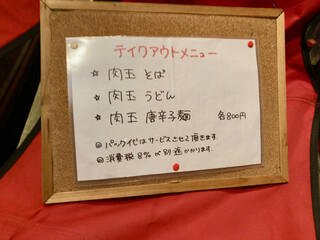 テイクアウトメニュー
☆ 肉玉 そば
☆ 肉玉 うどん
☆ 肉玉 唐辛子麺 各800円
◎ パック代はサービスさせて頂きます。
◎ 消費税8%が別途かかります。